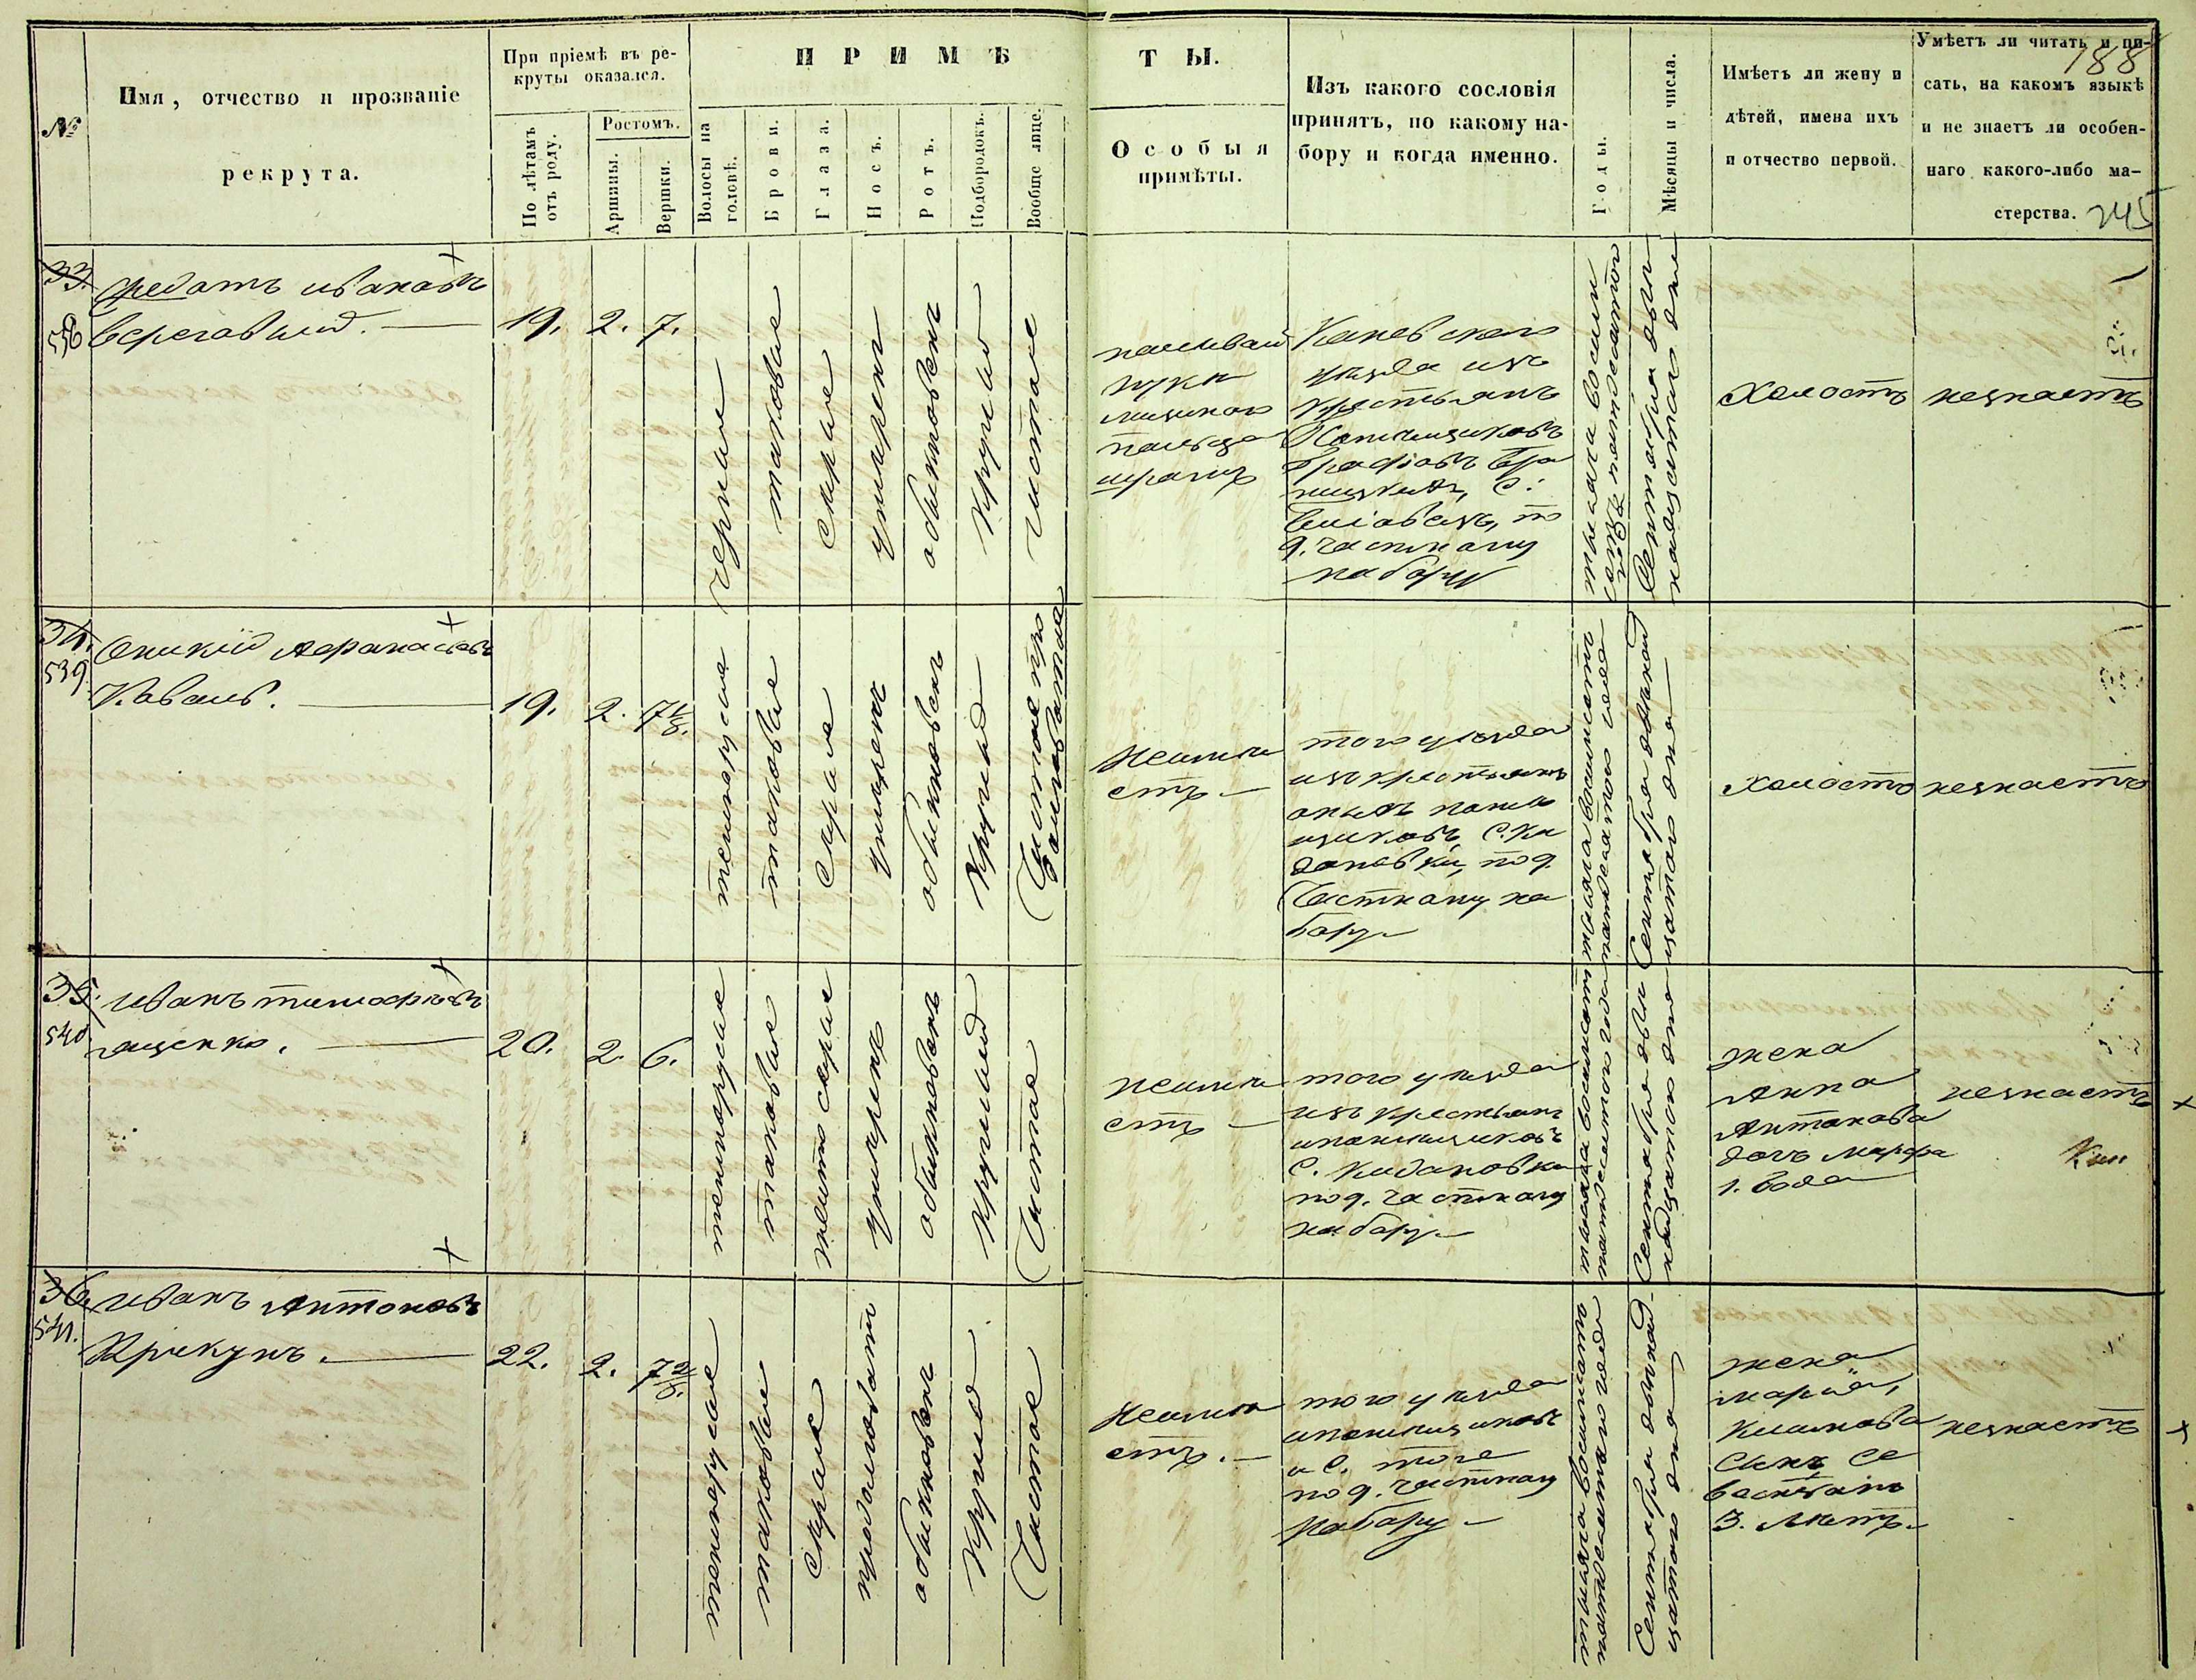 188
245
№
Имя, отчество и прозваніе
рекрута.
При пріемѣ въ ре-
круты оказался.
По лѣтамъ
отъ роду.
Ростомъ.
Аршины.
Вершки.
ПРИМѢТЫ.
Волосы на
головѣ.
Брови.
Глаза.
Носъ.
Ротъ.
Подбородокъ.
Вообще лице.
Особыя
примѣты.
Изъ какого сословія
принятъ, по какому на-
бору и когда именно.
Годы.
Мѣсяцы и числа.
Имѣетъ ли жену и
дѣтей, имена ихъ
и отчество первой.
Умѣетъ ли читать и пи-
сать, на какомъ языкѣ
и не знаетъ ли особен-
наго какого-либо ма-
стерства.
33.
538
Федотъ Ивановъ
19.
2.
7.
черные
таковые
серые
умеренъ
обыкновенъ
круглый
чистое
руки
пальца
шрамъ
Каневскаго
уезда изъ
крестьянъ
графовъ Бра
ницкихъ, С.
по
9. частному
набору
тысяча восемь
сотъ пятдесятого
года
Сентября двѣ
надцатаго дня
Холостъ
незнаетъ
34.
539
Оникій Афанасьевъ
Коваль.
19.
2.
7 1/8.
темнорусые
таковые
серые
умеренъ
обыкновенъ
круглый
Чистое про
долговатое
неиме
етъ
того уезда
изъ крестьянъ
оныхъ поме
щиковъ, С. Ки
дановки, по 9.
Частному на
бору
тысяча восемьсотъ
пятдесятого года
Сентября двѣнад
цатого дня
Холостъ
незнаетъ
35.
540
Иванъ Тимофеевъ
Ященко.
20.
2.
6.
темнорусые
таковые
желтосерые
умеренъ
обыкновенъ
круглый
Чистое
неиме
етъ
того уезда
изъ крестьянъ
ипомещиковъ
С. Кидановки
по 9. частному
набору
тысяча восемьсотъ
пятдесятого года
Сентября двѣ
надцатого дня
жена
Анна
Антонова
дочь Марфа
1. года
незнаетъ
36.
541.
Иванъ Антоновъ
Крикунъ.
22.
2.
7 2/8.
темнорусые
таковые
серые
продолговатъ
обыкновенъ
круглый
Чистое
неиме
етъ.
того уезда
ипомещиковъ
и С. того
по 9. частному
набору
тысяча восемьсотъ
пятдесятого года
Сентября двѣнад
цатого дня
жена
Марія,
Климова
Сынъ Се
вастіянъ
3. летъ
незнаетъ